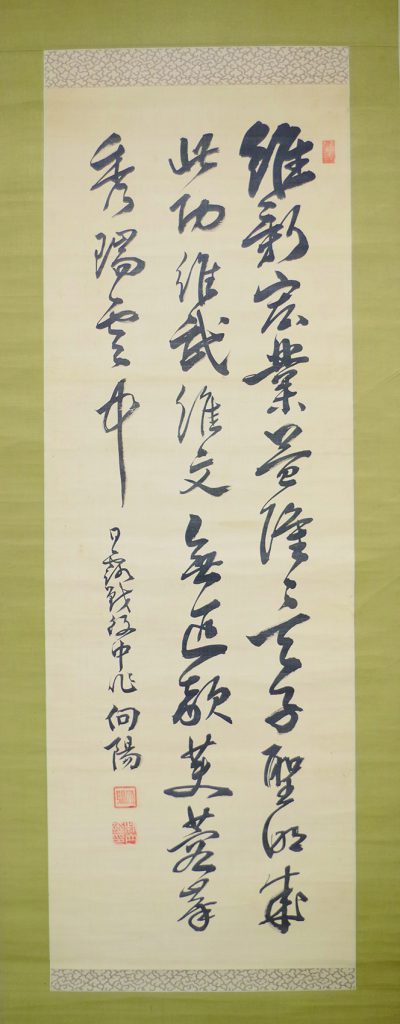 維新宏業益隆々天子聖明成
此功維武維文無匹敵芙蓉峯
秀瑞雲中 日露戰役中作 向陽